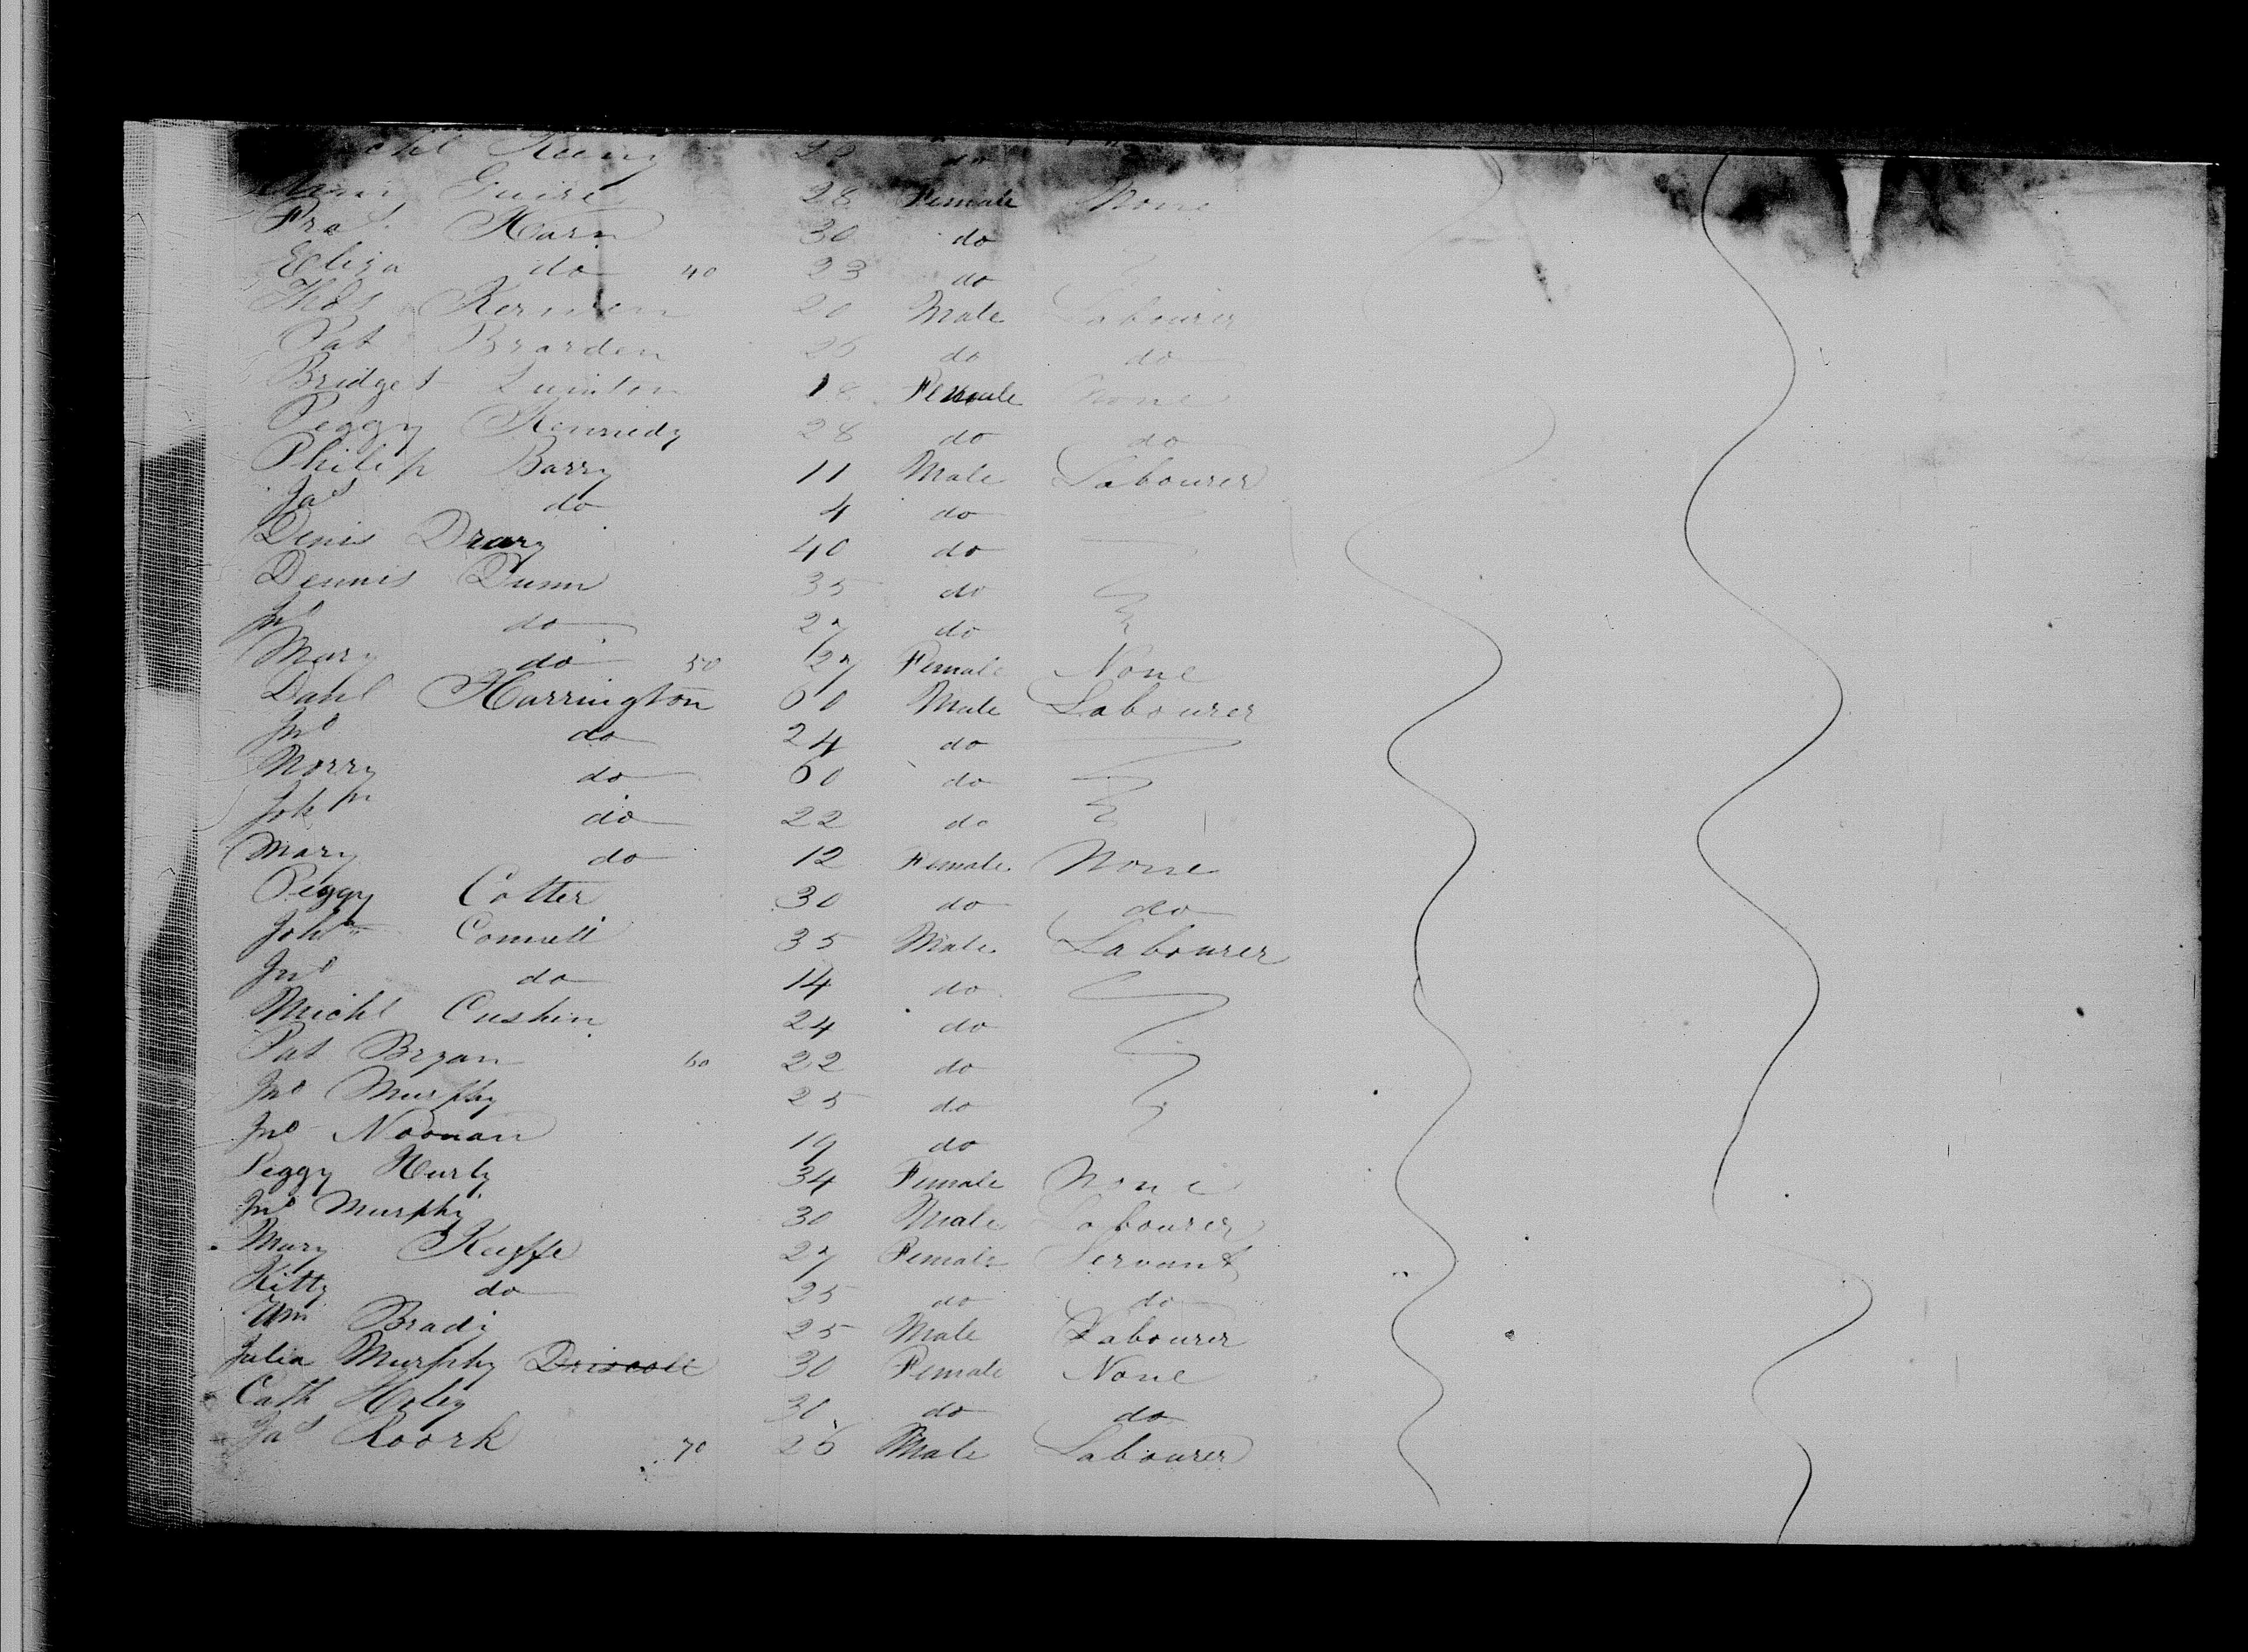 Keeny 20 do
Guire 28 Female None
Fras Harn 30 do
Eliza do 40 23 do
Thos Kernen 20 Male Labourer
Pat Brarden 25 do do
Bridget Quinton 18 Female None
Peggy Kennedy 28 do do
Philip Barry 11 Male Labourer
Jas do 4 do
Denis Drary 40 do
Dennis Dunn 35 do
Jno do 27 do
Mary do 50 27 Female None
Danl Harrington 60 Male Labourer
Jno do 24 do
Norry do 60 do
do 22 do
Mary do 12 Female None
Peggy Cotter 30 do do
John Connell 35 Male Labourer
Jno do 14 do
Michl Cushin 24 do
Pat Bryan 60 22 do
Jno Murphy 25 do
Jno Noonan 19 do
Peggy Hurly 34 Female None
Jno Murphy 30 Male Labourer
Mary Keeffe 27 Female Servant
Kitty do 25 do do
Wm Bradi 25 Male Labourer
Julia Murphy Driscoll 30 Female None
Cath Holey 30 do do
Jas Roork 70 26 Male Labourer